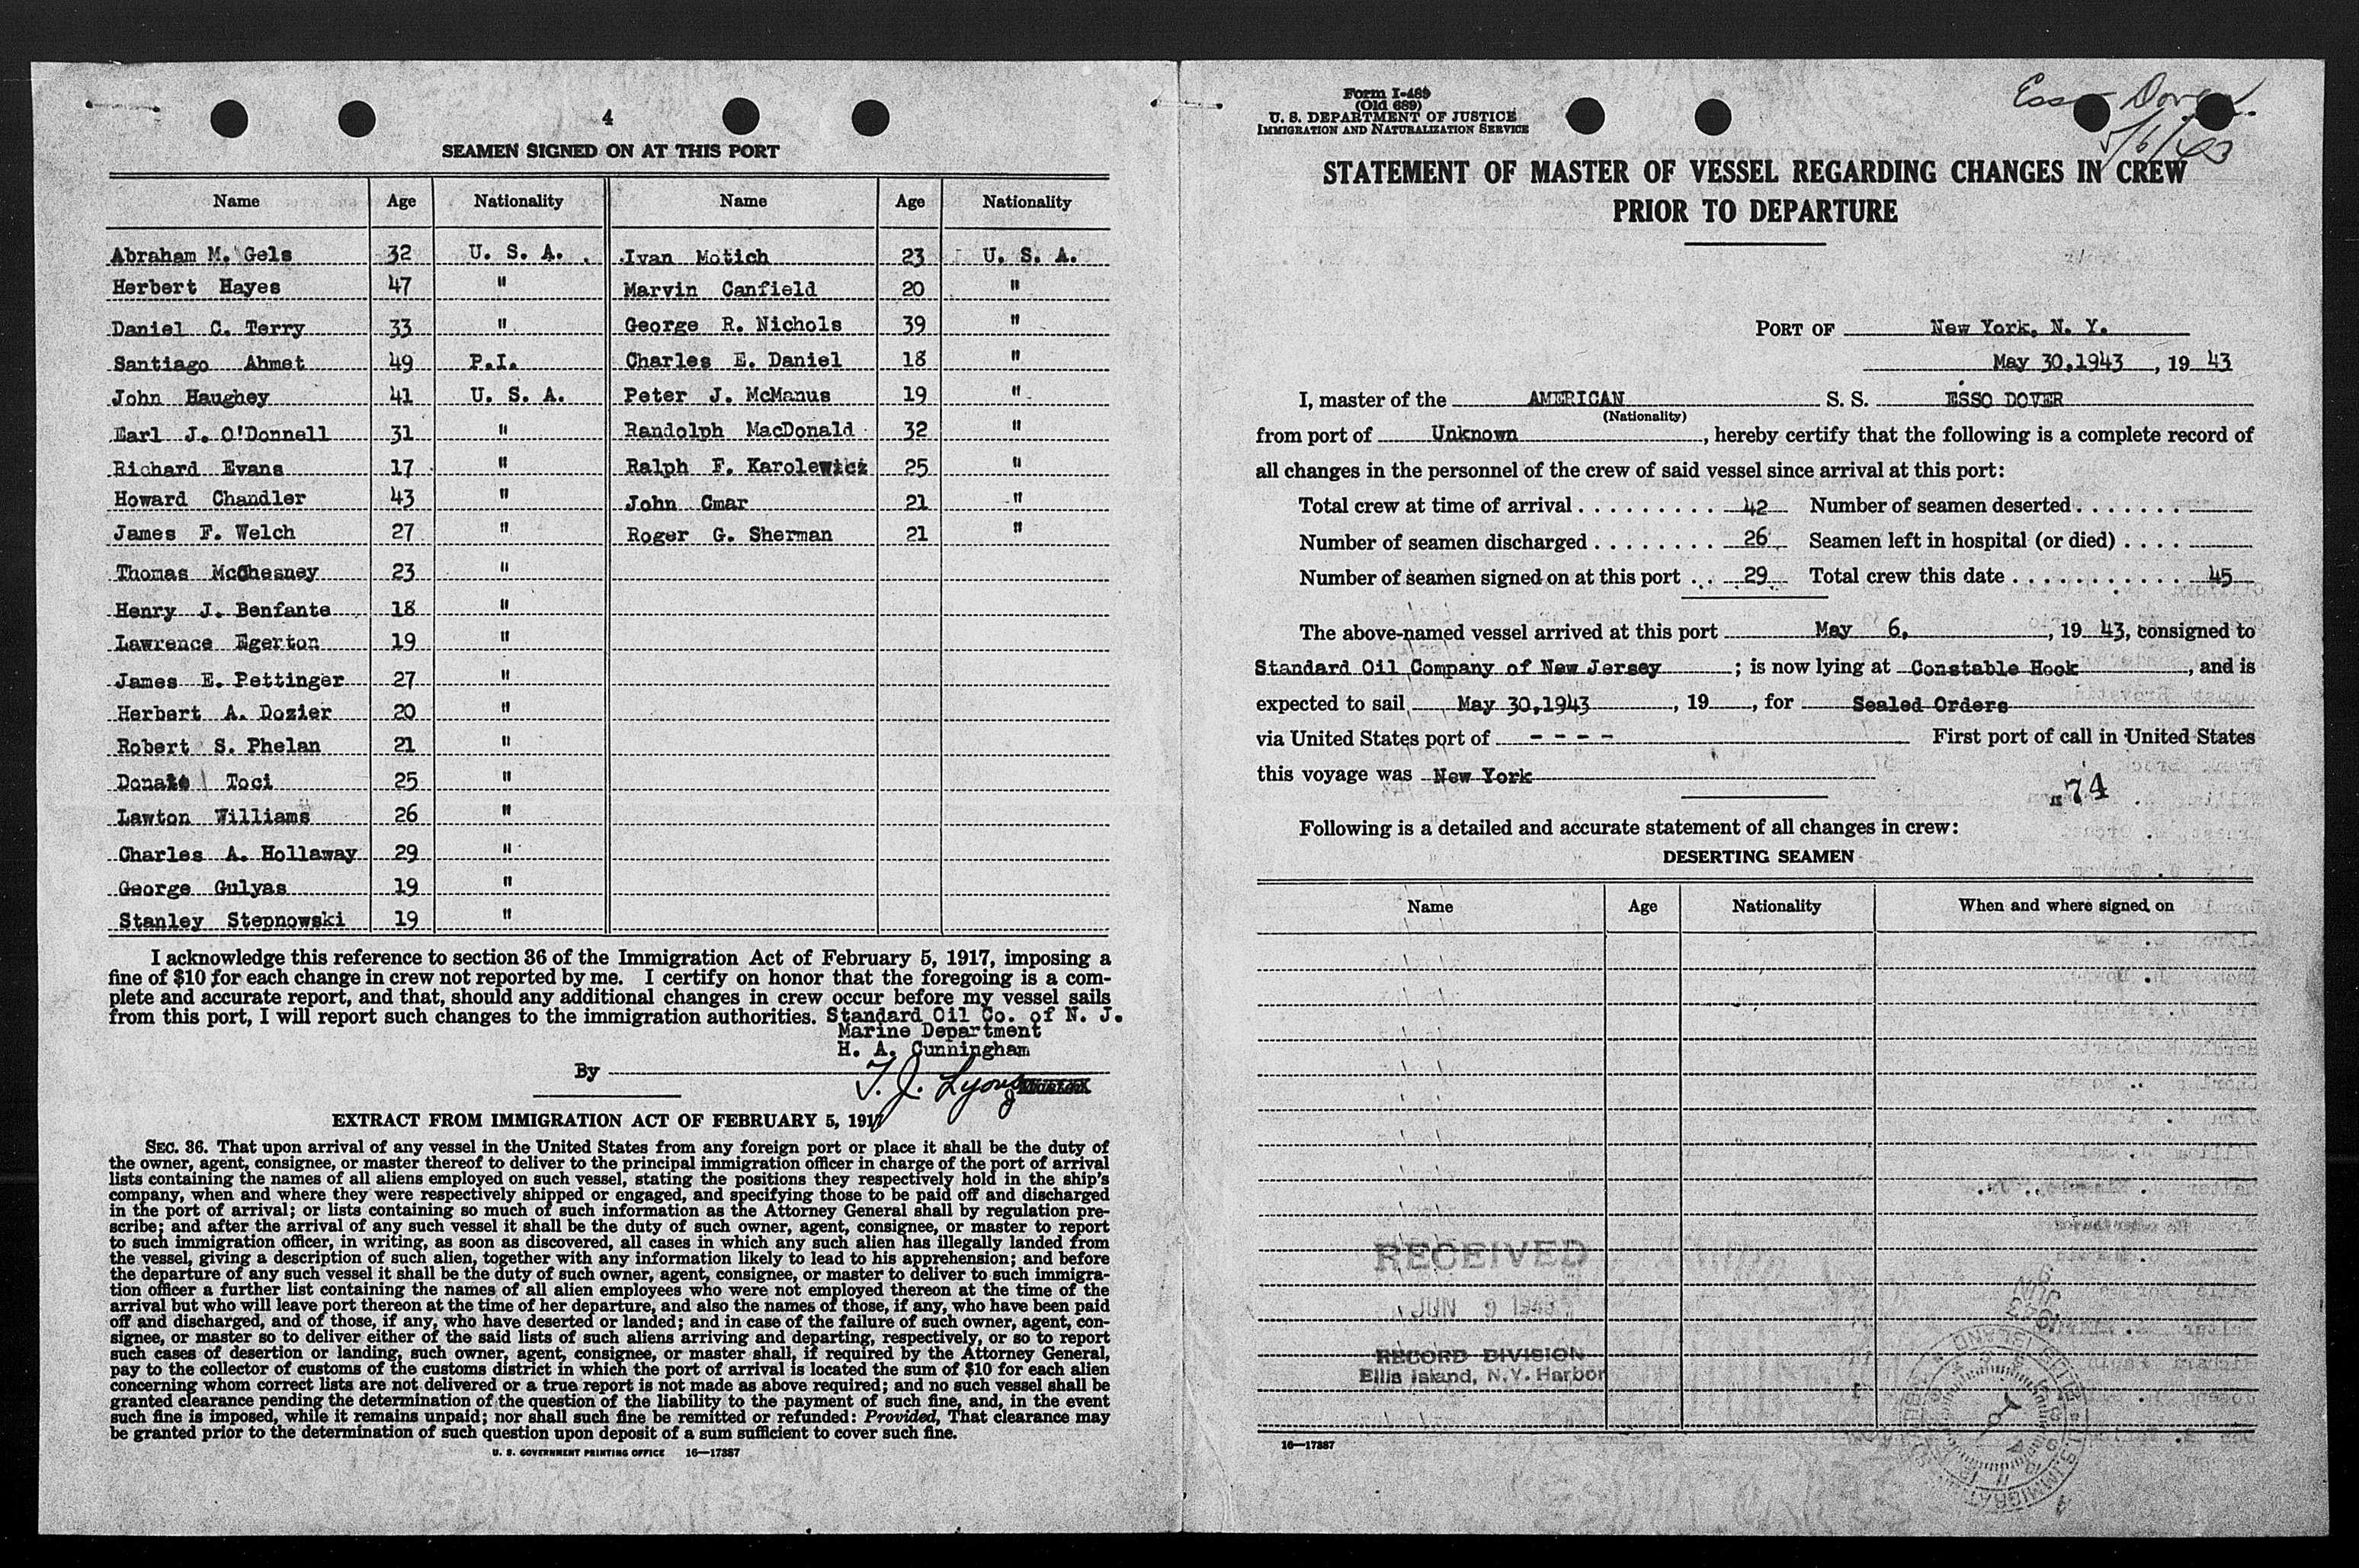 4
SEAMEN SIGNED ON AT THIS PORT
Name Age Nationality Name Age Nationality
Abraham M. Gels 32 U. S. A. Ivan Motich 23 U. S. A.
Herbert Hayes 47 " Marvin Canfield 20 "
Daniel C. Terry 33 " George R. Nichols 39 "
Santiago Ahmet 49 P.I. Charles E. Daniel 18 "
John Haughey 41 U. S. A. Peter J. McManus 19 "
Earl J. O'Donnell 31 " Randolph MacDonald 32 "
Richard Evans 17 " Ralph F. Karolewicz 25 "
Howard Chandler 43 " John Cmar 21 "
James F. Welch 27 " Roger G. Sherman 21 "
Thomas McChesney 23 "
Henry J. Benfante 18 "
Lawrence Egerton 19 "
James E. Pettinger 27 "
Herbert A. Dozier 20 "
Robert S. Phelan 21 "
Donato Toci 25 "
Lawton Williams 26 "
Charles A. Hollaway 29 "
George Gulyas 19 "
Stanley Stepnowski 19 "
I acknowledge this reference to section 36 of the Immigration Act of February 5, 1917, imposing a
fine of $10 for each change in crew not reported by me. I certify on honor that the foregoing is a com-
plete and accurate report, and that, should any additional changes in crew occur before my vessel sails
from this port, I will report such changes to the immigration authorities. Standard Oil Co. of N. J.
Marine Department
H. A. Cunningham
By T. J. Lyons
EXTRACT FROM IMMIGRATION ACT OF FEBRUARY 5, 1917
SEC. 36. That upon arrival of any vessel in the United States from any foreign port or place it shall be the duty of
the owner, agent, consignee, or master thereof to deliver to the principal immigration officer in charge of the port of arrival
lists containing the names of all aliens employed on such vessel, stating the positions they respectively hold in the ship's
company, when and where they were respectively shipped or engaged, and specifying those to be paid off and discharged
in the port of arrival; or lists containing so much of such information as the Attorney General shall by regulation pre-
scribe; and after the arrival of any such vessel it shall be the duty of such owner, agent, consignee, or master to report
to such immigration officer, in writing, as soon as discovered, all cases in which any such alien has illegally landed from
the vessel, giving a description of such alien, together with any information likely to lead to his apprehension; and before
the departure of any such vessel it shall be the duty of such owner, agent, consignee, or master to deliver to such immigra-
tion officer a further list containing the names of all alien employees who were not employed thereon at the time of the
arrival but who will leave port thereon at the time of her departure, and also the names of those, if any, who have been paid
off and discharged, and of those, if any, who have deserted or landed; and in case of the failure of such owner, agent, con-
signee, or master so to deliver either of the said lists of such aliens arriving and departing, respectively, or so to report
such cases of desertion or landing, such owner, agent, consignee, or master shall, if required by the Attorney General,
pay to the collector of customs of the customs district in which the port of arrival is located the sum of $10 for each alien
concerning whom correct lists are not delivered or a true report is not made as above required; and no such vessel shall be
granted clearance pending the determination of the question of the liability to the payment of such fine, and, in the event
such fine is imposed, while it remains unpaid; nor shall such fine be remitted or refunded: Provided, That clearance may
be granted prior to the determination of such question upon deposit of a sum sufficient to cover such fine.
U. S. GOVERNMENT PRINTING OFFICE 16—17387
Form I-489
(Old 689)
U. S. DEPARTMENT OF JUSTICE
IMMIGRATION AND NATURALIZATION SERVICE
Esso Dover
5/6/43
STATEMENT OF MASTER OF VESSEL REGARDING CHANGES IN CREW
PRIOR TO DEPARTURE
PORT OF New York, N. Y.
May 30,1943, 19 43
I, master of the AMERICAN S. S. ESSO DOVER
(Nationality)
from port of Unknown, hereby certify that the following is a complete record of
all changes in the personnel of the crew of said vessel since arrival at this port:
Total crew at time of arrival 42 Number of seamen deserted
Number of seamen discharged 26 Seamen left in hospital (or died)
Number of seamen signed on at this port 29 Total crew this date 45
The above-named vessel arrived at this port May 6, , 19 43, consigned to
Standard Oil Company of New Jersey ; is now lying at Constable Hook, and is
expected to sail May 30,1943, 19 , for Sealed Orders
via United States port of - - - - First port of call in United States
this voyage was New York
74
Following is a detailed and accurate statement of all changes in crew:
DESERTING SEAMEN
Name Age Nationality When and where signed on
RECEIVED
JUN 9 1943
RECORD DIVISION
Ellis Island, N.Y. Harbor
JUN 9
1943
16—17387